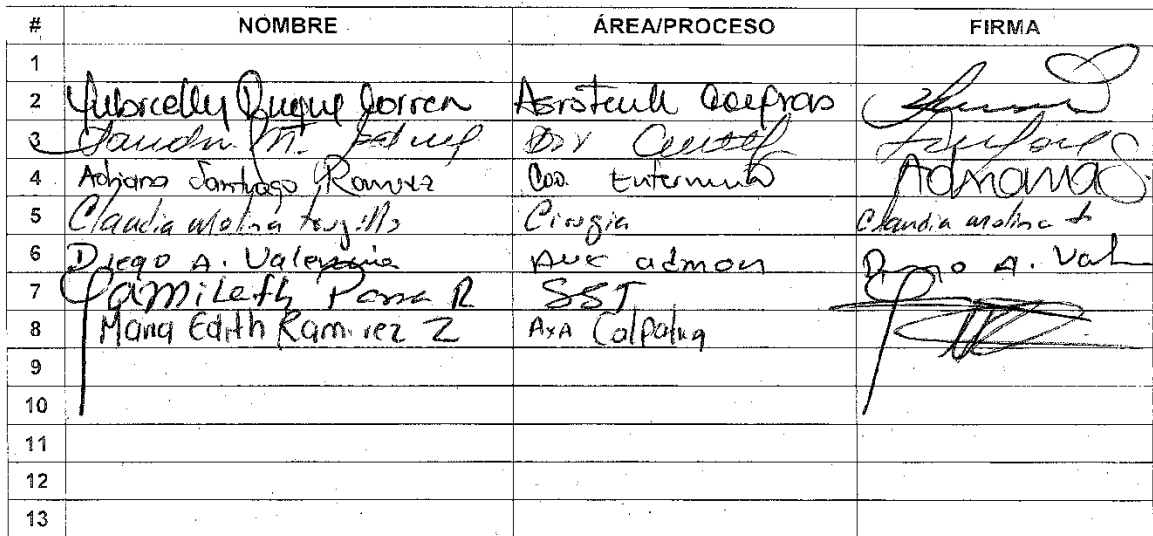 # NOMBRE ÁREA/PROCESO FIRMA
1
2 Yubicelly Duque
3 M.
4 Adriana Santiago Ramirez Coo. Enfermeria Adriana S.
5 Claudia molina trujillo Cirugia Claudia molina t
6 Diego A. Valencia Aux admon Diego A. Val
7 Yamileth Parra R SST
8 Maria Edith Ramirez Z AXA Colpatria
9
10
11
12
13